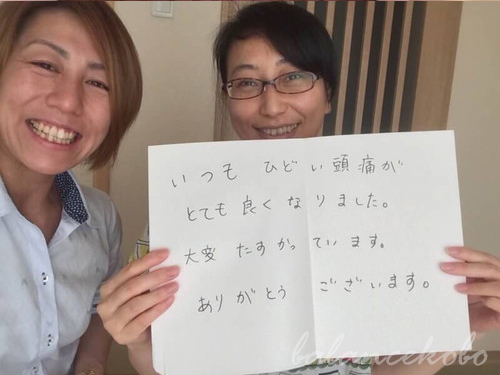 いつも ひどい頭痛が
とても良くなりました。
大変 たすかっています。
ありがとう ございます。
balancekobo